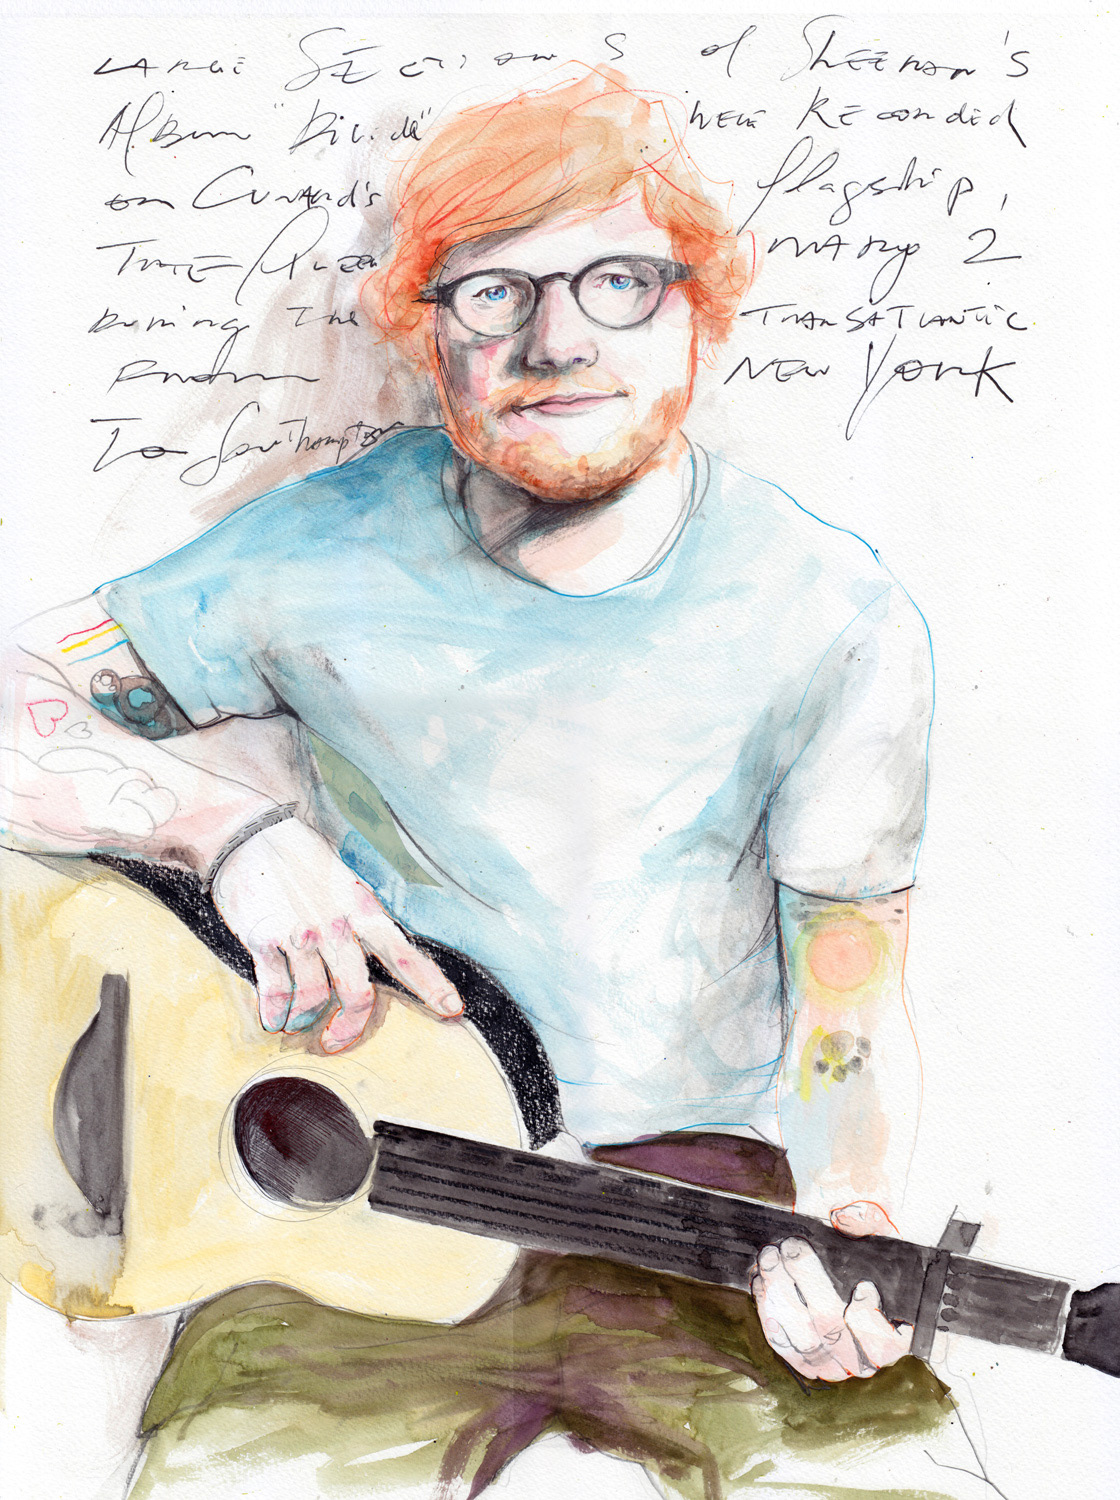 LARGE SECTIONS of SHEERAN'S
Album "Divide" were Recorded
on CUNARD'S flagship,
THE Queen MARY 2
During THE TRANSATLANTIC
NEW YORK
To Southampton